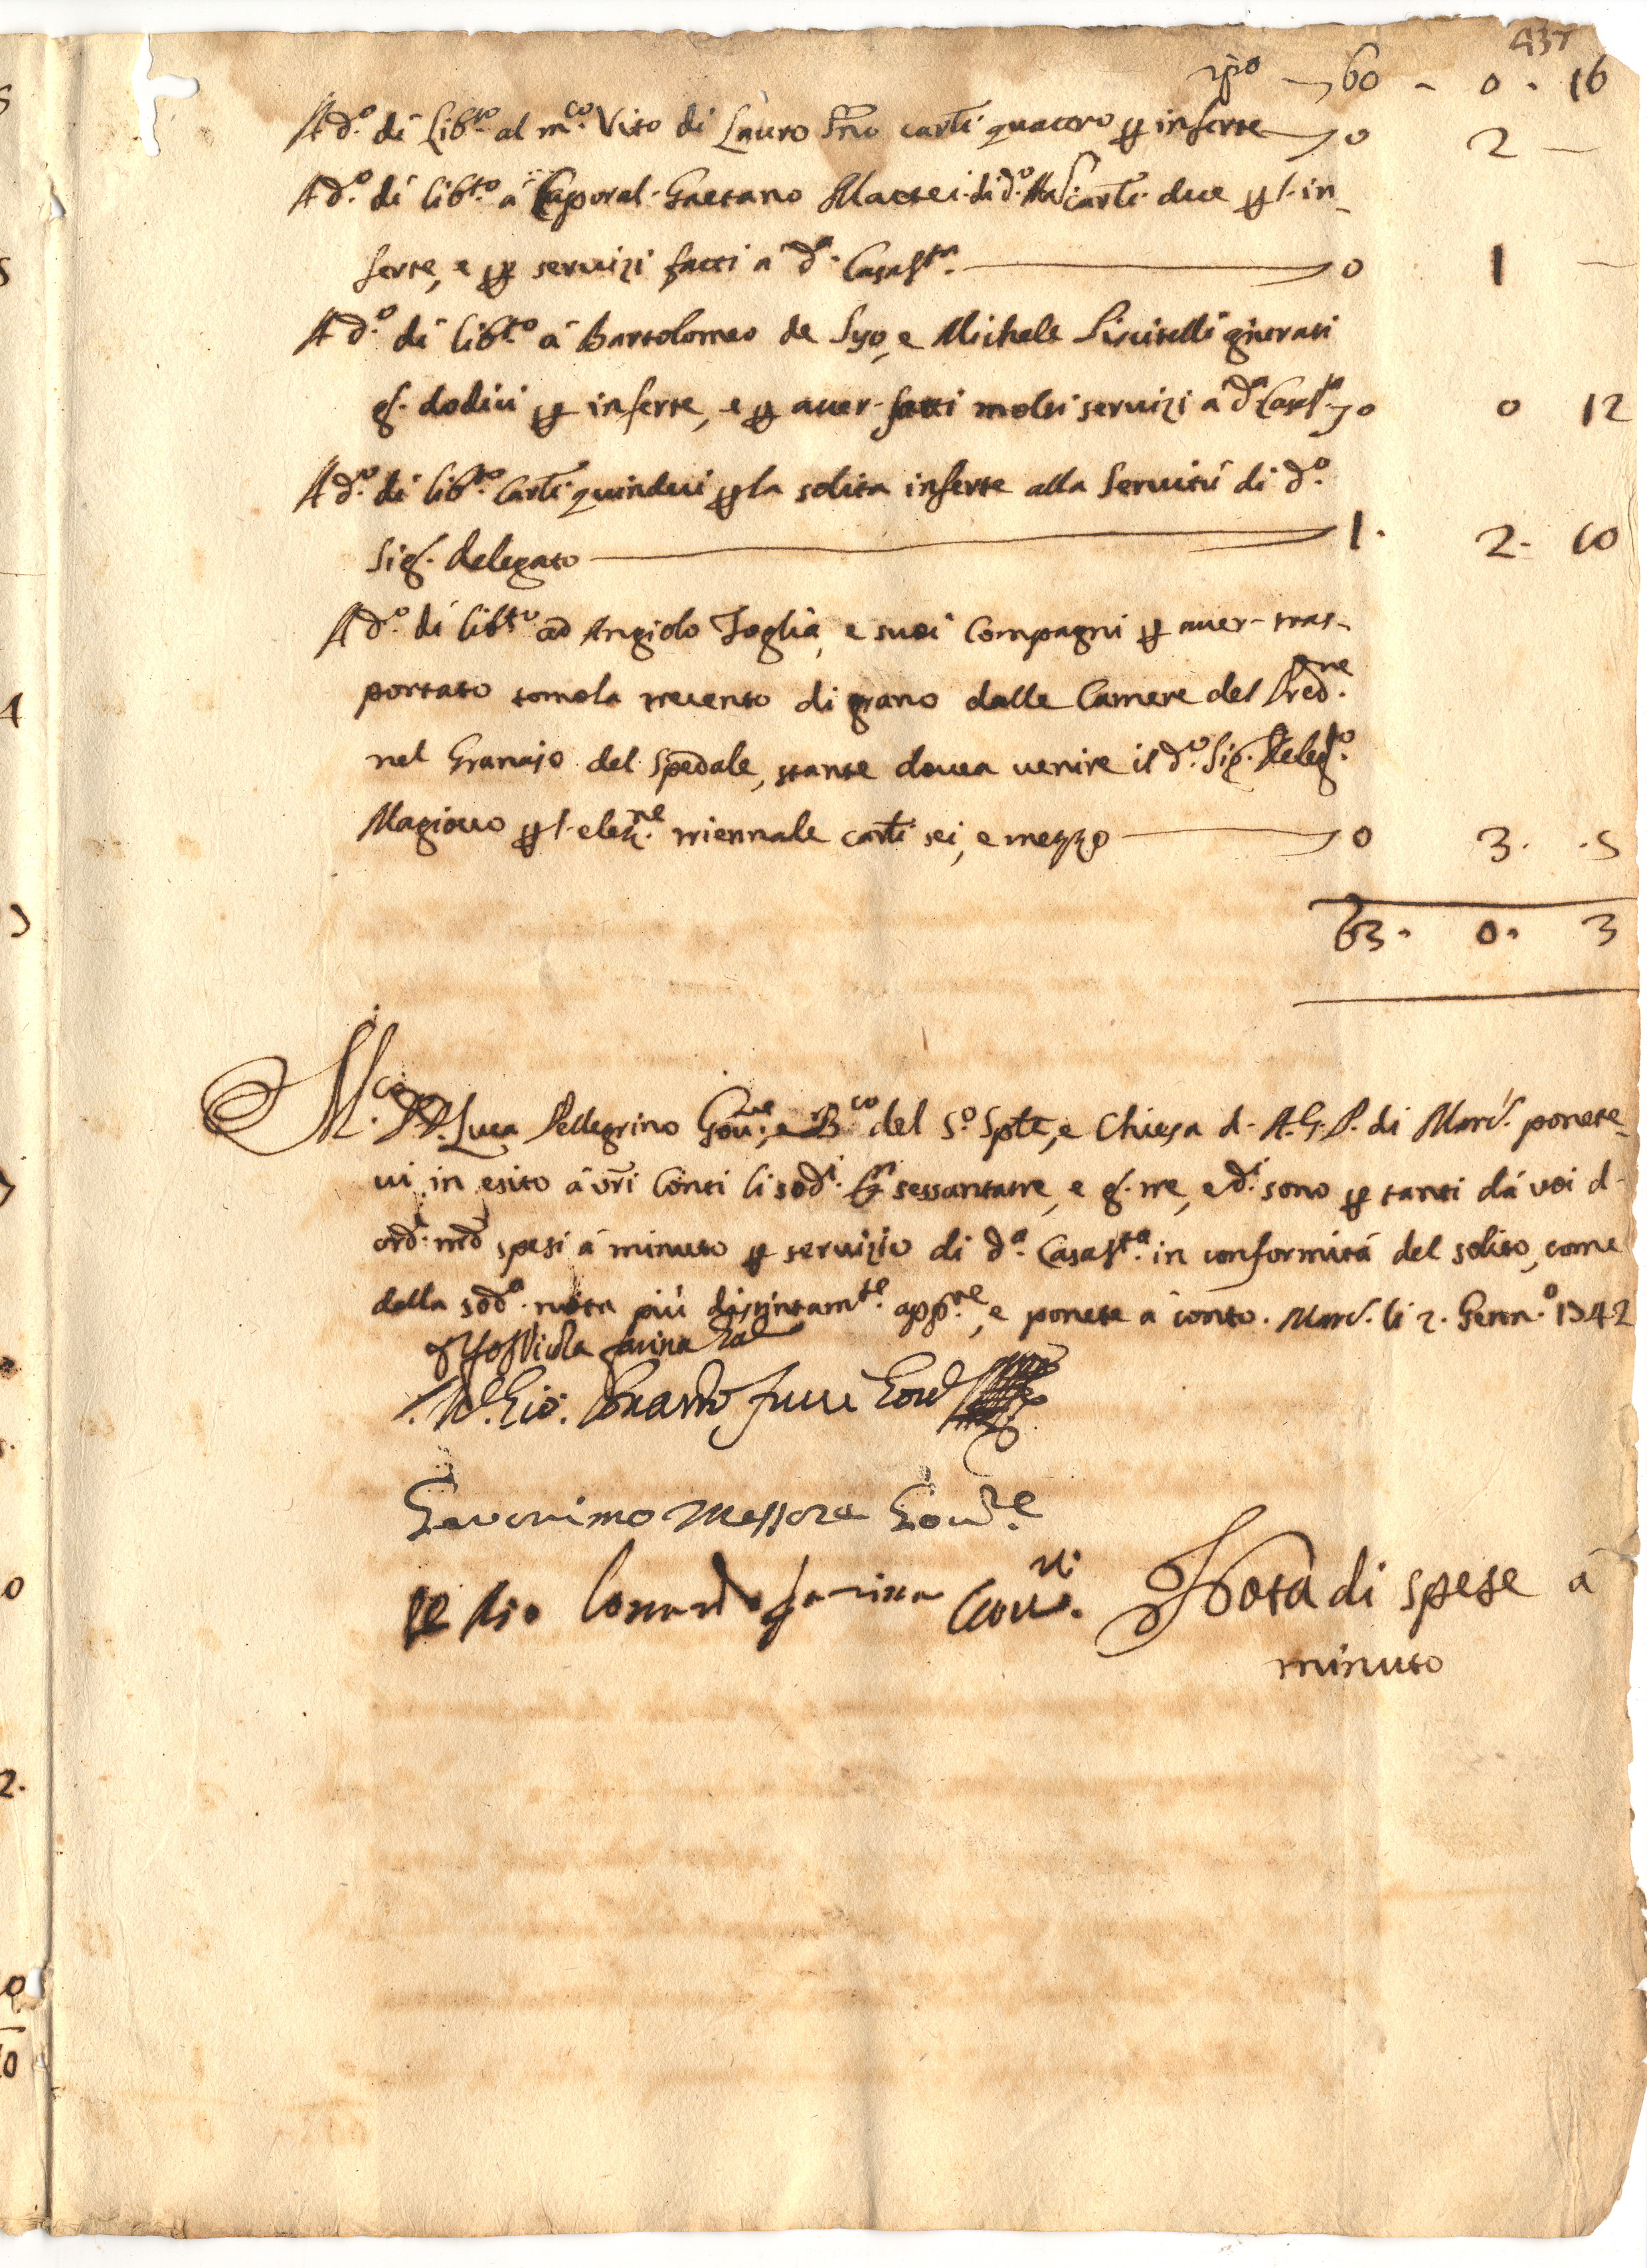 437
rpo 60 - 0 . 16
A d.º di Lib.to al m.co Vito di Lauro S.no carti quattro p inferte 0 2 —
A d.º di lib.to a Caporal. Gaetano Mattei di d.º carti due p l. in-
ferte, e p servizi fatti a d.a Casa S.ta 0 1 —
A d.º di lib.to a Bartolomeo de Syo, e Michele Liscitelli giurati
g. dodici p inferte, e p aver fatti molti servizi a d.a Casa S.ta 0 0 12
A d.º di lib.to Carti quindeci p la solita inferte alla Servitù di d.º
Sig. delegato 1. 2. 10
A d.º di lib.to ad Angiolo Foglia, e suoi Compagni p aver tras-
portato tomola trecento di grano dalle Camere del Pred.ne
nel Granajo del Spedale, stante dovea venire il d.º Sig. Deleg.to
Magiocco p l. elez.ne triennale carti sei, e mezzo 0 3. .5
63. 0. 3
M.co D. Luca Pellegrino Gov.re, e B.co del S.º Spte, e Chiesa d. A.G.P. di Marc. ponete-
vi in esito a vri Conti li sod.i sessantatre, e g. tre, e d.i sono p tanti dà voi d.
ord. md spesi à minuto p servizio di d.a Casa S.ta in conformità del solito, come
dalla sod.a nota più distintam.te app.re, e ponete a conto. Marc. li 2. Genn.º 1742
Nicola farina
Gio. Lonardo Gov
Geronimo Messore Gov.re
Io Gio Lonardo farina Gov.re
Nota di spese à
minuto